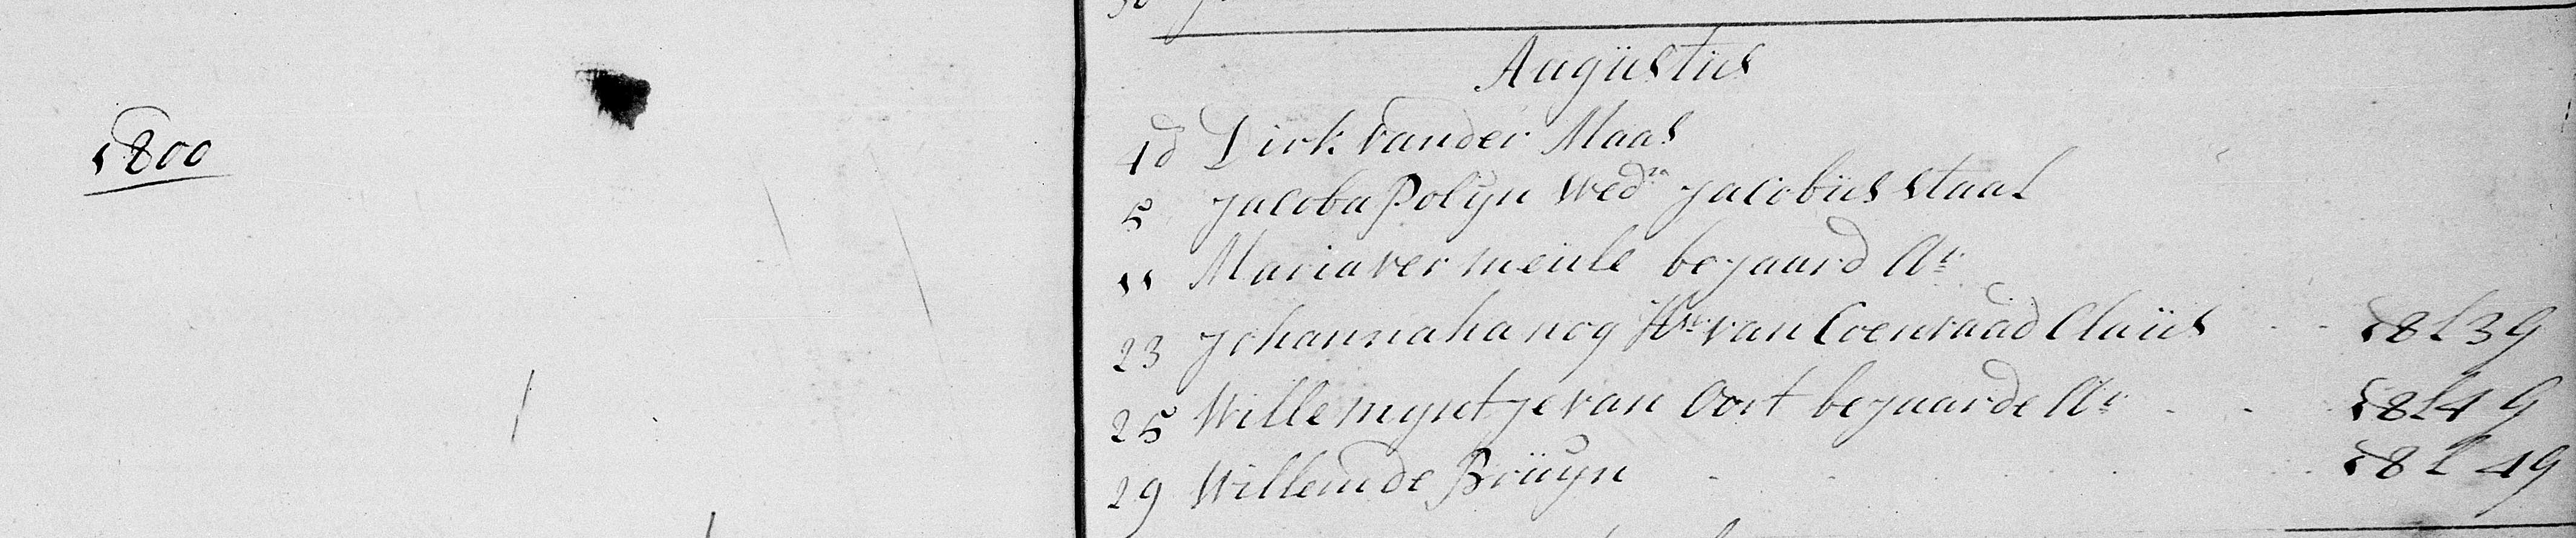 1800
Augüstüs
4d Dirk van der Maas
5 Jacoba Polÿn Wed.ᵉ Jacobüs Staal
11 Maria ver meüle bejaard
23 Johanna hanog Hv van Coenraad Claüs
25 Willemyntje van Oort bejaarde
29 Willem de Brüyn